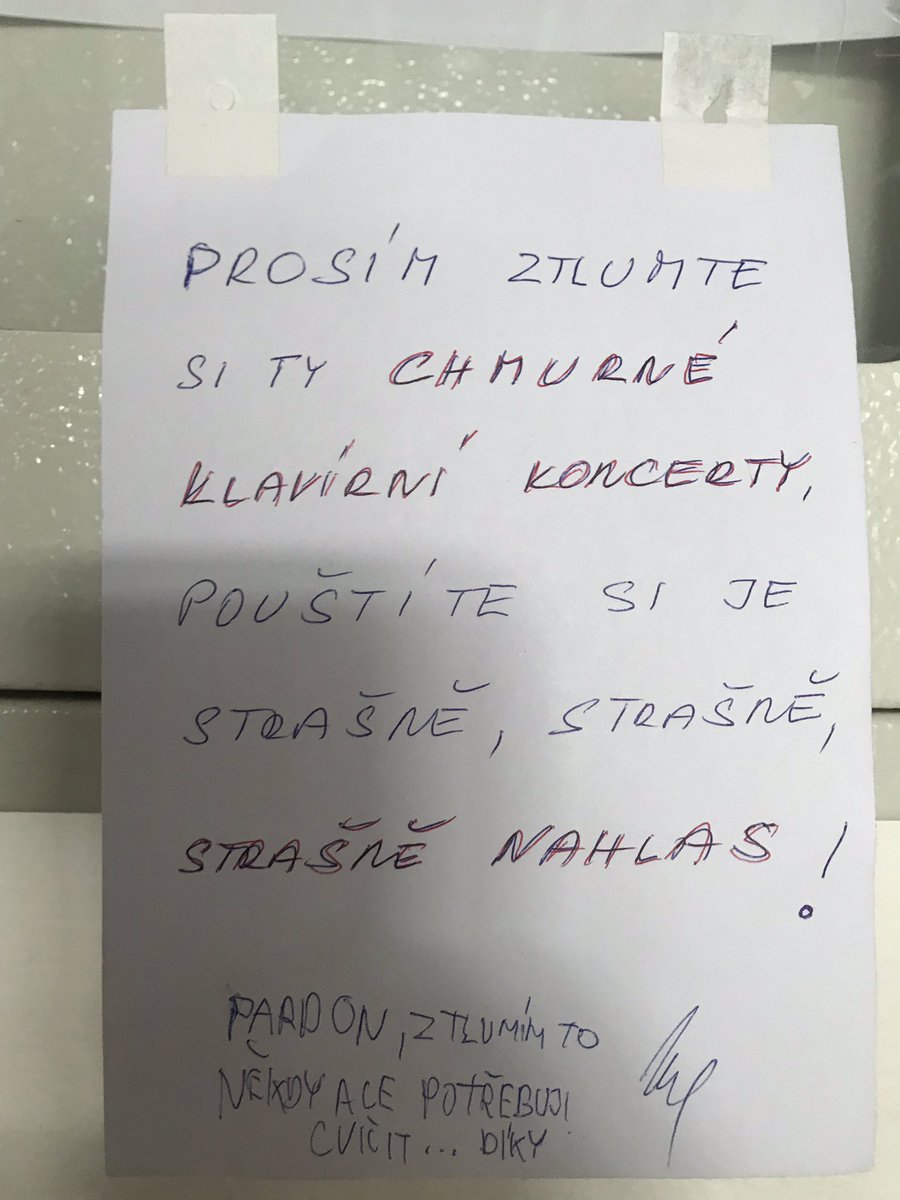 PROSÍM ZTLUMTE
SI TY CHMURNÉ
KLAVÍRNÍ KONCERTY,
POUŠTÍTE SI JE
STRAŠNĚ, STRAŠNĚ,
STRAŠNĚ NAHLAS!
PARDON, ZTLUMÍM TO
NĚKDY ALE POTŘEBUJI
CVIČIT... DÍKY